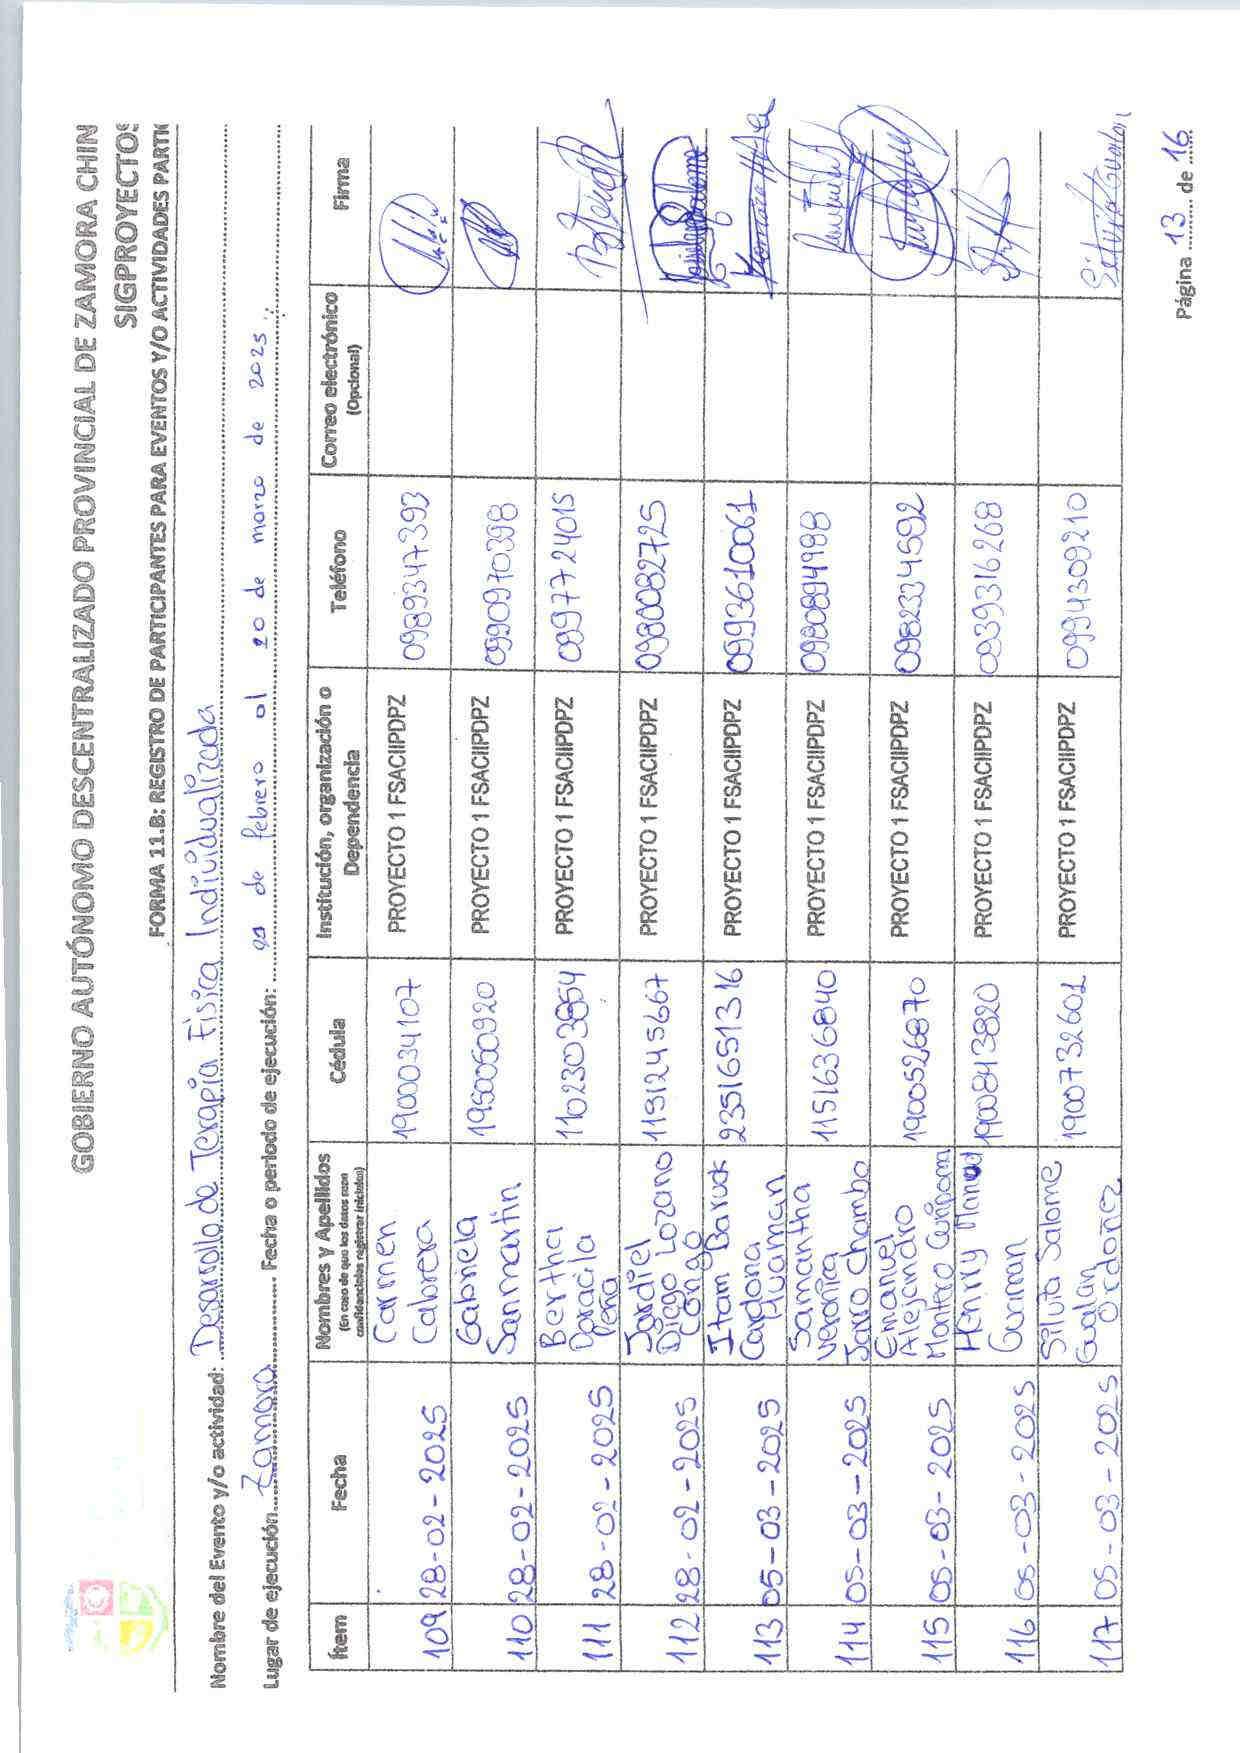 GOBIERNO AUTÓNOMO DESCENTRALIZADO PROVINCIAL DE ZAMORA CHIN
SIGPROYECTOS
FORMA 11.B: REGISTRO DE PARTICIPANTES PARA EVENTOS Y/O ACTIVIDADES PARTI
Nombre del Evento y/o actividad: Desarrollo de Terapia Fisica Individualizada
Lugar de ejecución Zamora Fecha o periodo de ejecución: de febrero al 20 de marzo de 2025
Ítem Fecha Nombres y Apellidos (En caso de que los datos sean confidenciales registrar iniciales) Cédula Institución, organización o Dependencia Teléfono Correo electrónico (Opcional) Firma
109 28-02-2025 Carmen Cabrera 1900034107 PROYECTO 1 FSACIIPDPZ 0989347393
110 28-02-2025 Gabriela Sanmartin 1950060920 PROYECTO 1 FSACIIPDPZ 0990970398
111 28-02-2025 Bertha Doracila Peña 1102303854 PROYECTO 1 FSACIIPDPZ 0997724015
112 28-02-2025 Jardiel Diego Lozano Congo PROYECTO 1 FSACIIPDPZ 0980082725
113 05-03-2025 Itam Baruck Cardona Huaman 2351651316 PROYECTO 1 FSACIIPDPZ 0993610061
114 05-03-2025 Samantha Veronica Jarro Chamba 1151636840 PROYECTO 1 FSACIIPDPZ 0980894988
115 05-03-2025 Emanuel Alejandro Montero 1900526870 PROYECTO 1 FSACIIPDPZ 0982334592
116 05-03-2025 Henrry Manuel Guaman 1900843820 PROYECTO 1 FSACIIPDPZ 0939316268
117 05-03-2025 Silvia Salome Gualan Ordoñez 1900732601 PROYECTO 1 FSACIIPDPZ 0994309210
Página 13 de 16